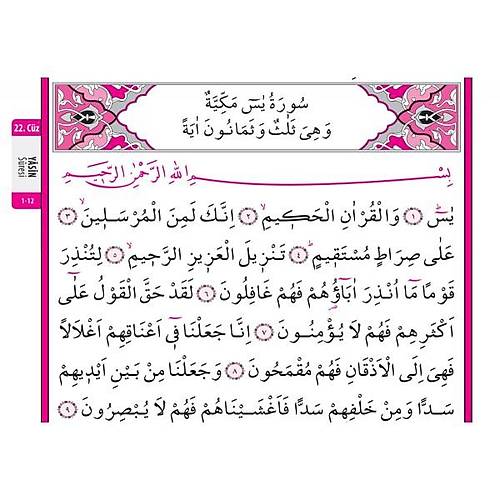 سُورَةُ يٰسٓ مَكِّيَّةٌ
وَهِىَ ثَلٰثٌ وَثَمَانُونَ اٰيَةً
22. Cüz
YÂSÎN
Sûresi
1-12
بِسْمِ اللّٰهِ الرَّحْمٰنِ الرَّحٖيمِ
يٰسٓ ﴿١﴾ وَالْقُرْاٰنِ الْحَكٖيمِ ﴿٢﴾ اِنَّكَ لَمِنَ الْمُرْسَلٖينَ ﴿٣﴾
عَلٰى صِرَاطٍ مُسْتَقٖيمٍ ﴿٤﴾ تَنْزٖيلَ الْعَزٖيزِ الرَّحٖيمِ ﴿٥﴾ لِتُنْذِرَ
قَوْمًا مَٓا اُنْذِرَ اٰبَٓاؤُ۬هُمْ فَهُمْ غَافِلُونَ ﴿٦﴾ لَقَدْ حَقَّ الْقَوْلُ عَلٰٓى
اَكْثَرِهِمْ فَهُمْ لَا يُؤْمِنُونَ ﴿٧﴾ اِنَّا جَعَلْنَا فٖٓى اَعْنَاقِهِمْ اَغْلَالًا
فَهِىَ اِلَى الْاَذْقَانِ فَهُمْ مُقْمَحُونَ ﴿٨﴾ وَجَعَلْنَا مِنْ بَيْنِ اَيْدٖيهِمْ
سَدًّا وَمِنْ خَلْفِهِمْ سَدًّا فَاَغْشَيْنَاهُمْ فَهُمْ لَا يُبْصِرُونَ ﴿٩﴾